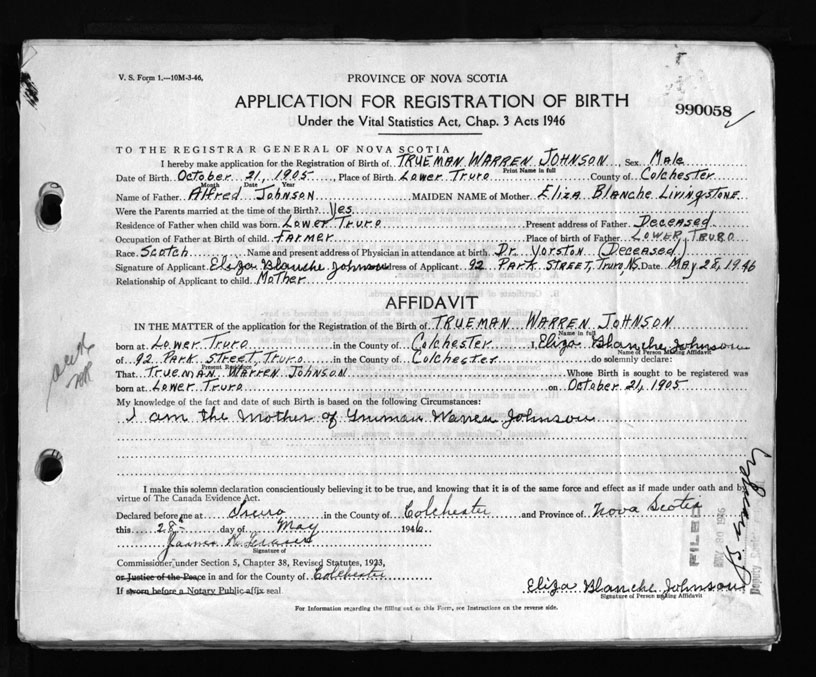 V. S. Form 1.—10M-3-46,
PROVINCE OF NOVA SCOTIA
APPLICATION FOR REGISTRATION OF BIRTH
990058
Under the Vital Statistics Act, Chap. 3 Acts 1946
TO THE REGISTRAR GENERAL OF NOVA SCOTIA
I hereby make application for the Registration of Birth of TRUEMAN WARREN JOHNSON, Sex Male
Print Name in full
Date of Birth October 21, 1905, Place of Birth Lower Truro County of Colchester
Month Date Year
Name of Father Alfred Johnson MAIDEN NAME of Mother Eliza Blanche Livingstone
Were the Parents married at the time of the Birth? Yes
Residence of Father when child was born Lower Truro Present address of Father Deceased
Occupation of Father at Birth of child Farmer Place of birth of Father LOWER TRURO
Race Scotch Name and present address of Physician in attendance at birth Dr Yorston (Deceased)
Signature of Applicant Eliza Blanche Johnson Address of Applicant 92 Park Street, Truro, NS. Date May 28, 1946
Relationship of Applicant to child Mother
AFFIDAVIT
IN THE MATTER of the application for the Registration of the Birth of TRUEMAN WARREN JOHNSON
Name in full
born at Lower Truro in the County of Colchester I, Eliza Blanche Johnson
Name of Person Making Affidavit
of 92 Park Street, Truro in the County of Colchester do solemnly declare:
Present Residence
That Trueman Warren Johnson Whose Birth is sought to be registered was
born at Lower Truro on October 21, 1905
My knowledge of the fact and date of such Birth is based on the following Circumstances:
I am the Mother of Truman Warren Johnson
I make this solemn declaration conscientiously believing it to be true, and knowing that it is of the same force and effect as if made under oath and by
virtue of The Canada Evidence Act.
Declared before me at Truro in the County of Colchester and Province of Nova Scotia
this 28 day of May 1946
James Fraser
Signature of
Commissioner, under Section 5, Chapter 38, Revised Statutes, 1923,
or Justice of the Peace in and for the County of Colchester
If sworn before a Notary Public affix seal
Eliza Blanche Johnson
Signature of Person making Affidavit
For Information regarding the filling out of this Form, see Instructions on the reverse side.
FILED